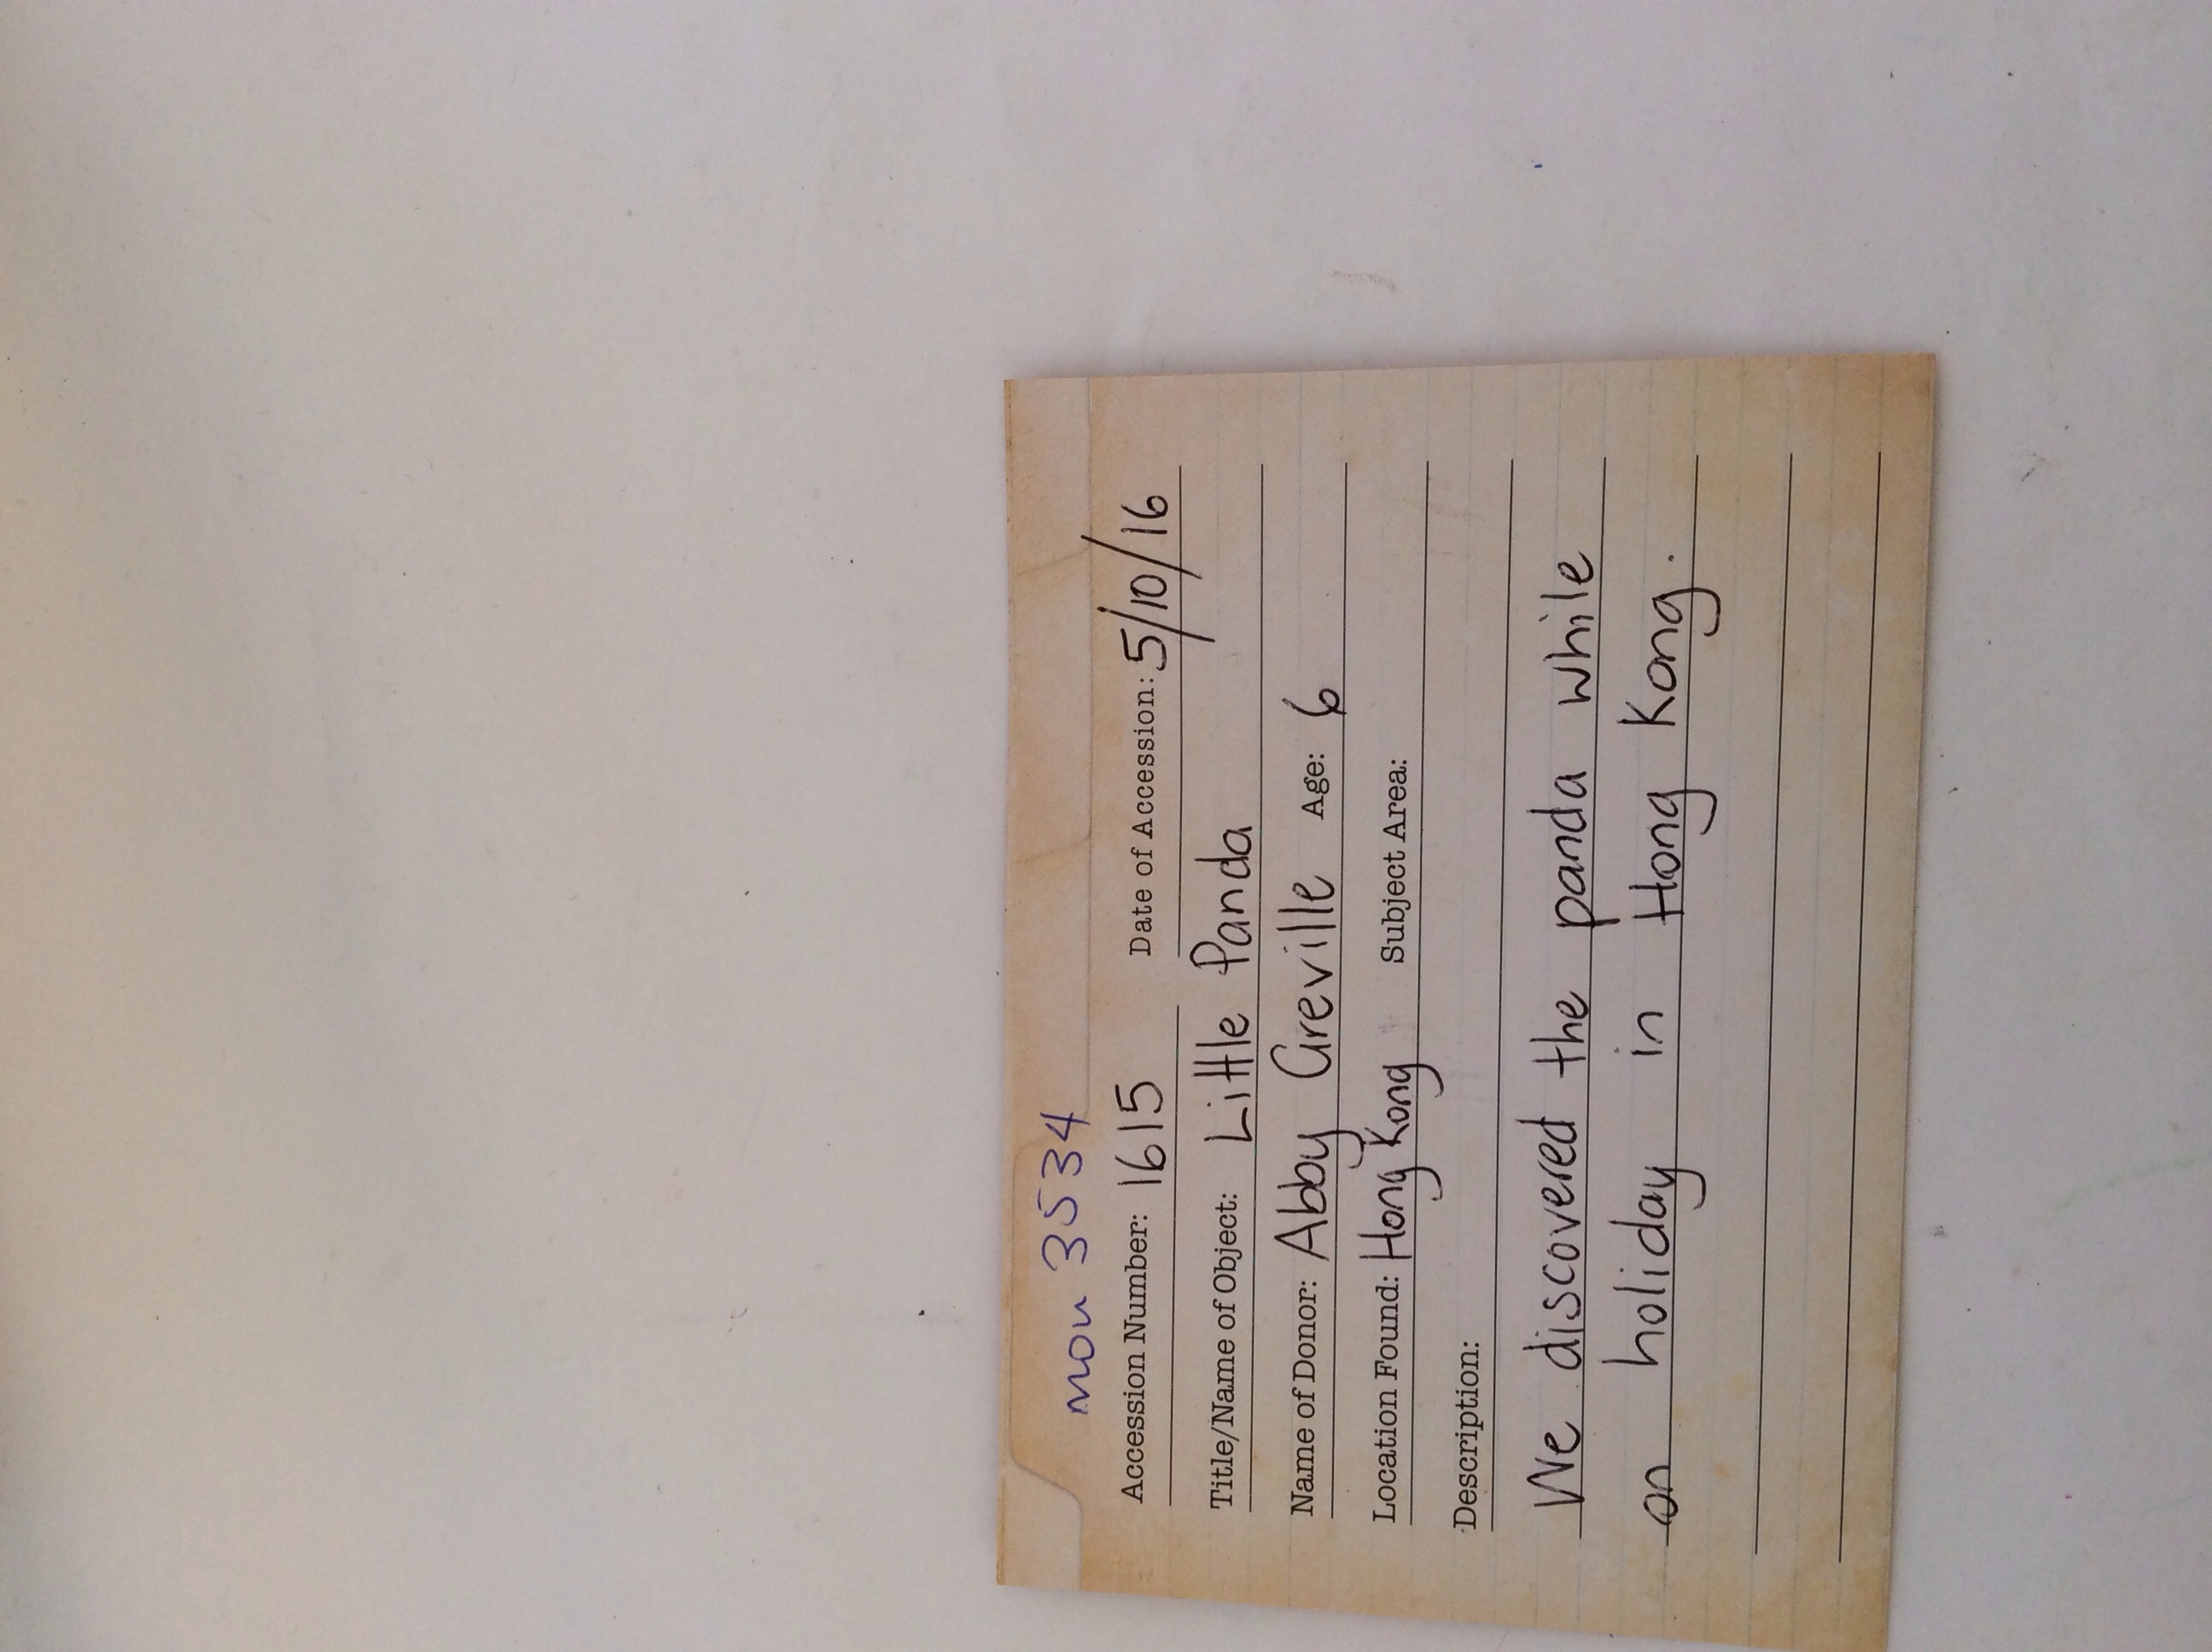 mou 3534
Accession Number: 1615 Date of Accession: 5/10/16
Title/Name of Object: Little Panda
Name of Donor: Abby Greville Age: 6
Location Found: Hong Kong Subject Area:
Description:
We discovered the panda while
on holiday in Hong Kong.